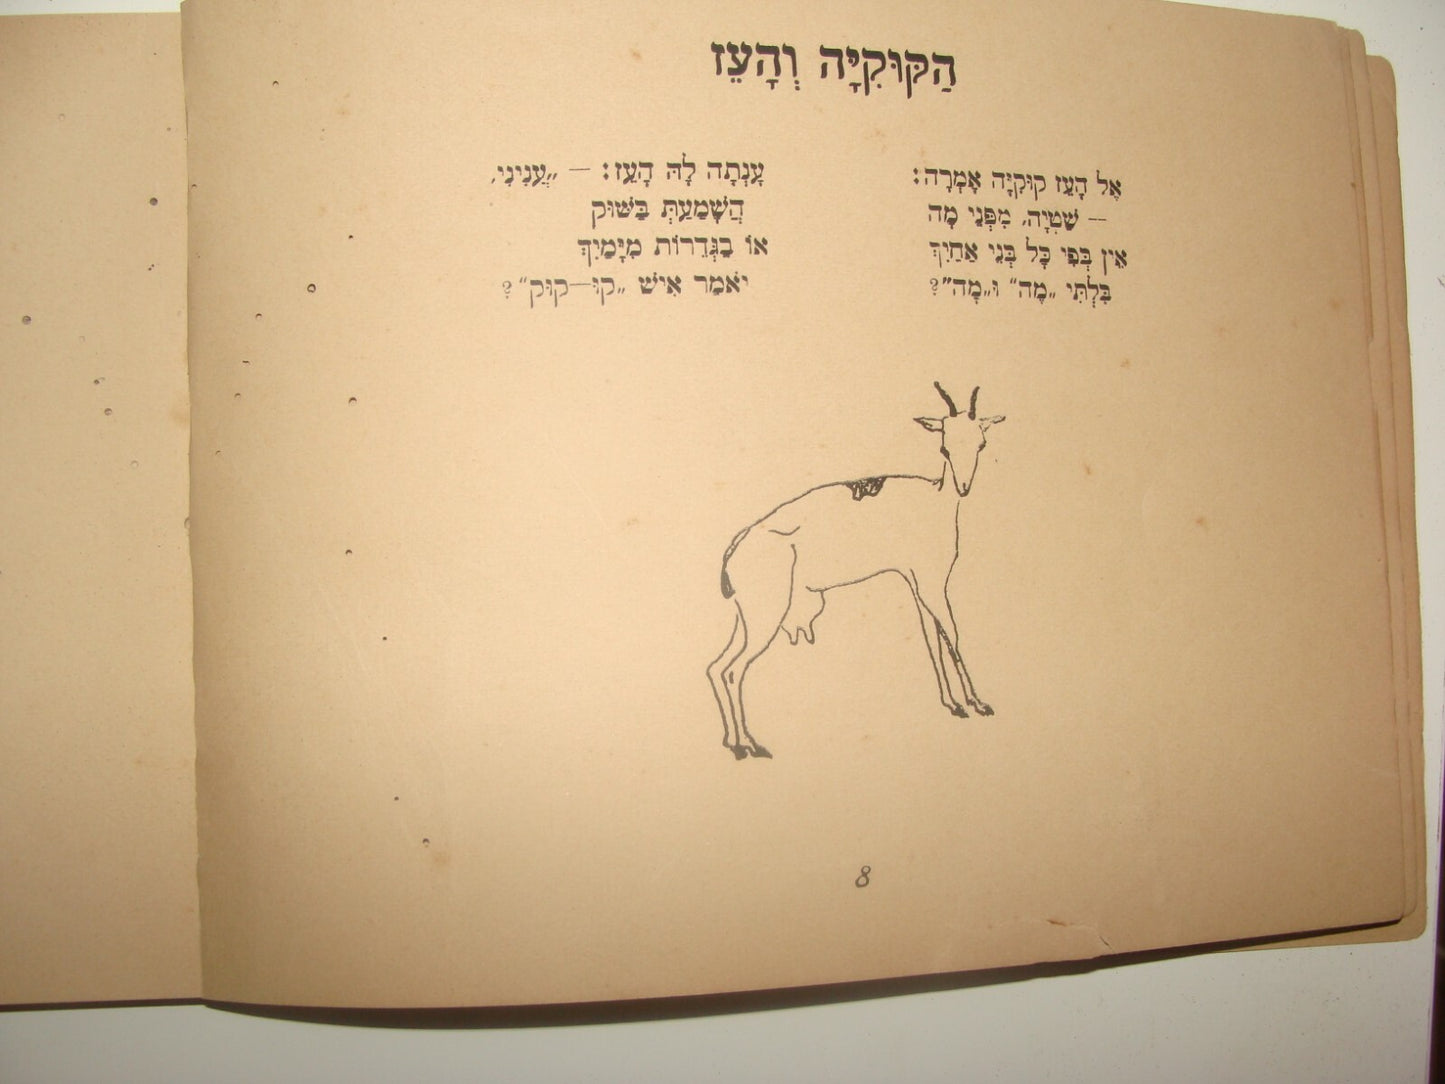 הַקּוּקִיָּה וְהָעֵז
אֶל הָעֵז קוּקִיָּה אָמְרָה:
— שְׁטִיָּה, מִפְּנֵי מָה
אֵין בְּפִי כָּל בְּנֵי אַחַיִךְ
בִּלְתִּי „מֶה״ וּ„מָה״?
עָנְתָה לָהּ הָעֵז: — „עֲנִינִי,
הֲשָׁמַעַתְּ בַּשּׁוּק
אוֹ בַגְּדֵרוֹת מִיָּמַיִךְ
יֹאמַר אִישׁ „קוּ—קוּק״?
8